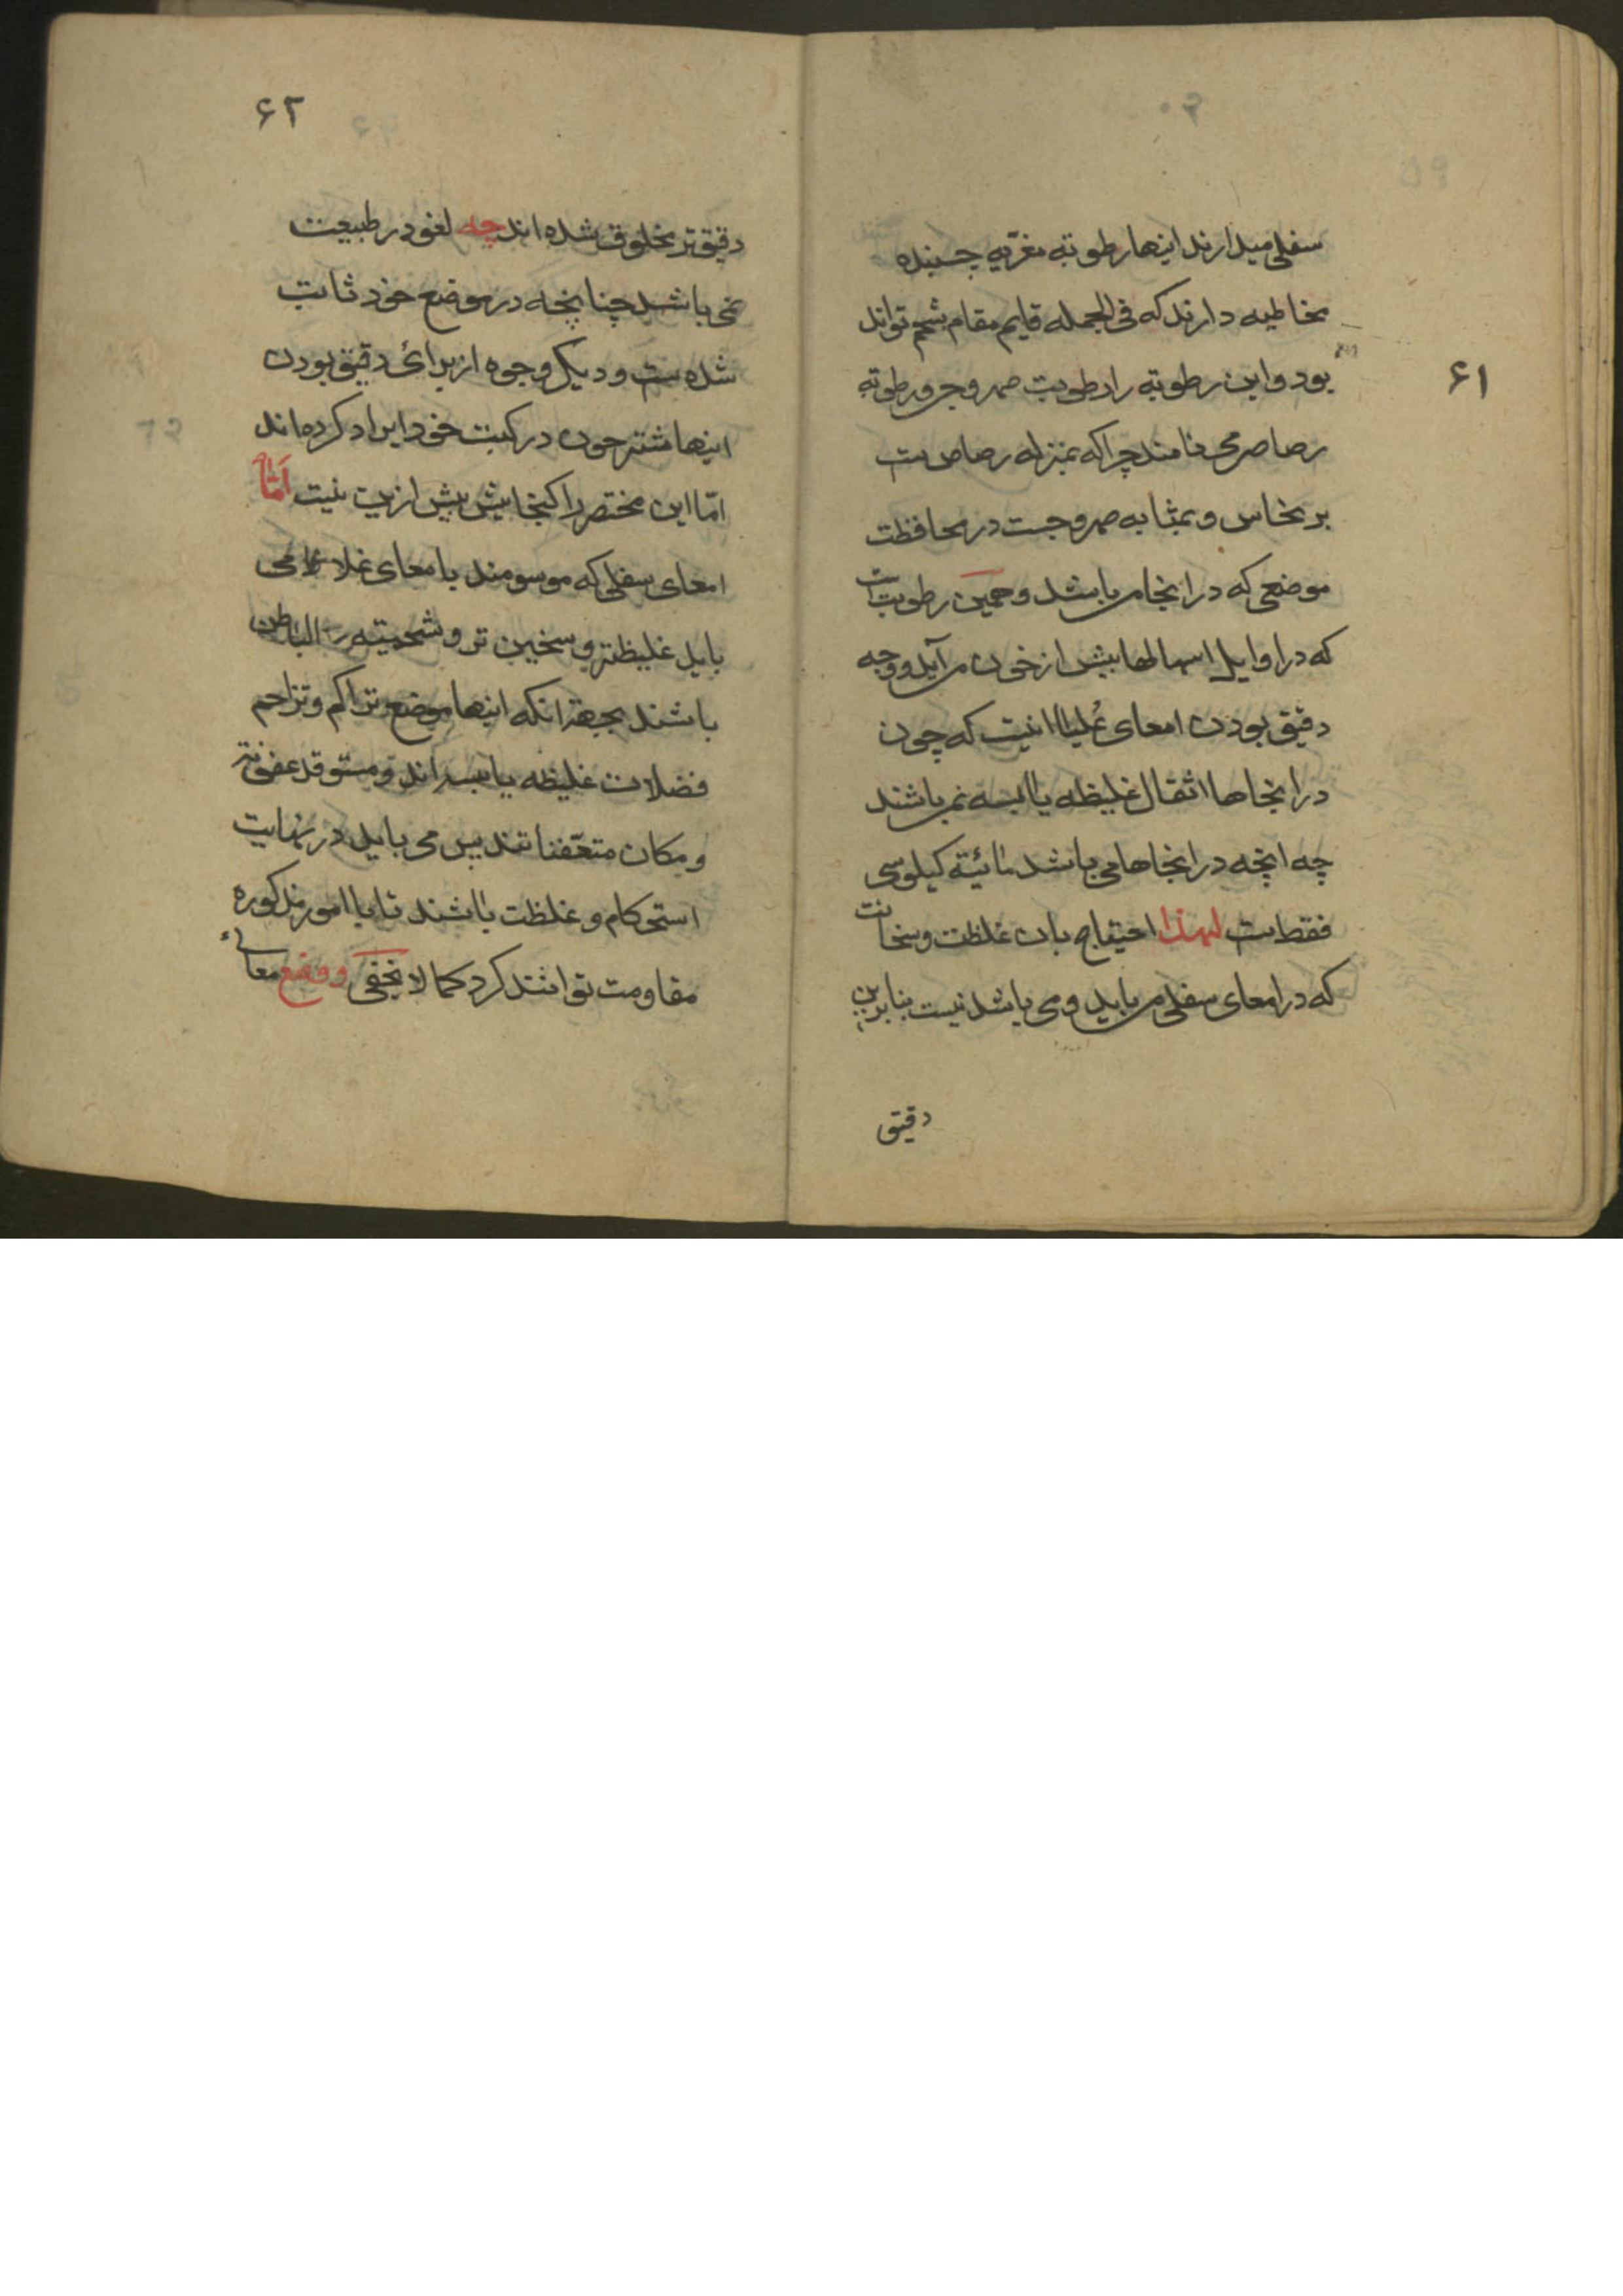 ۶۱
سفلی میدارند اینها رطوبة مغریه چسبنده
مخاطیه دارند که فی الجمله قایم مقام شحم تواند
بود و این رطوبة را رطوبت صهروجی و رطوبة
رصاصی می نامند چرا که بمنزله رصاص ست
بر نحاس و بمثابه صهروجست در محافظت
موضعی که در انجا می باشد و همین رطوبت است
که در اوایل اسهالها پیش از خون می آید و وجه
دقیق بودن امعای عُلیا انیست که چون
در انجاها اثقال غلیظه یا یابسه نمی باشند
چه انچه در انجاها می باشد مائیة کیلوسی
فقط ست لهذا احتیاج بان غلظت و سخانت
که در امعای سفلی می باید و می باشد نیست بنابرین
دقیق
۶۲
دقیق تر مخلوق شده اند چه لغو در طبیعت
نمی باشد چنانچه در موضع خود ثابت
شده ست و دیگر وجوه از برای دقیق بودن
اینها مشرحون در کتب خود ایراد کرده اند
امّا این مختصر را گنجایش بیش ازین نیست امّا
امعای سفلی که موسومند بامعای غلاظ می
باید غلیظتر و سخین تر و شحمیته الباطن
باشند بجهة انکه اینها موضع تراکم و تزاحم
فضلات غلیظه یابسه اند و مستوقد عفونة
و مکان متعّفناتند پس می باید در نهایت
استحکام و غلظت باشند تا با امور مذکوره
مقاومت توانند کرد کما لا یخفی و وضع معاء